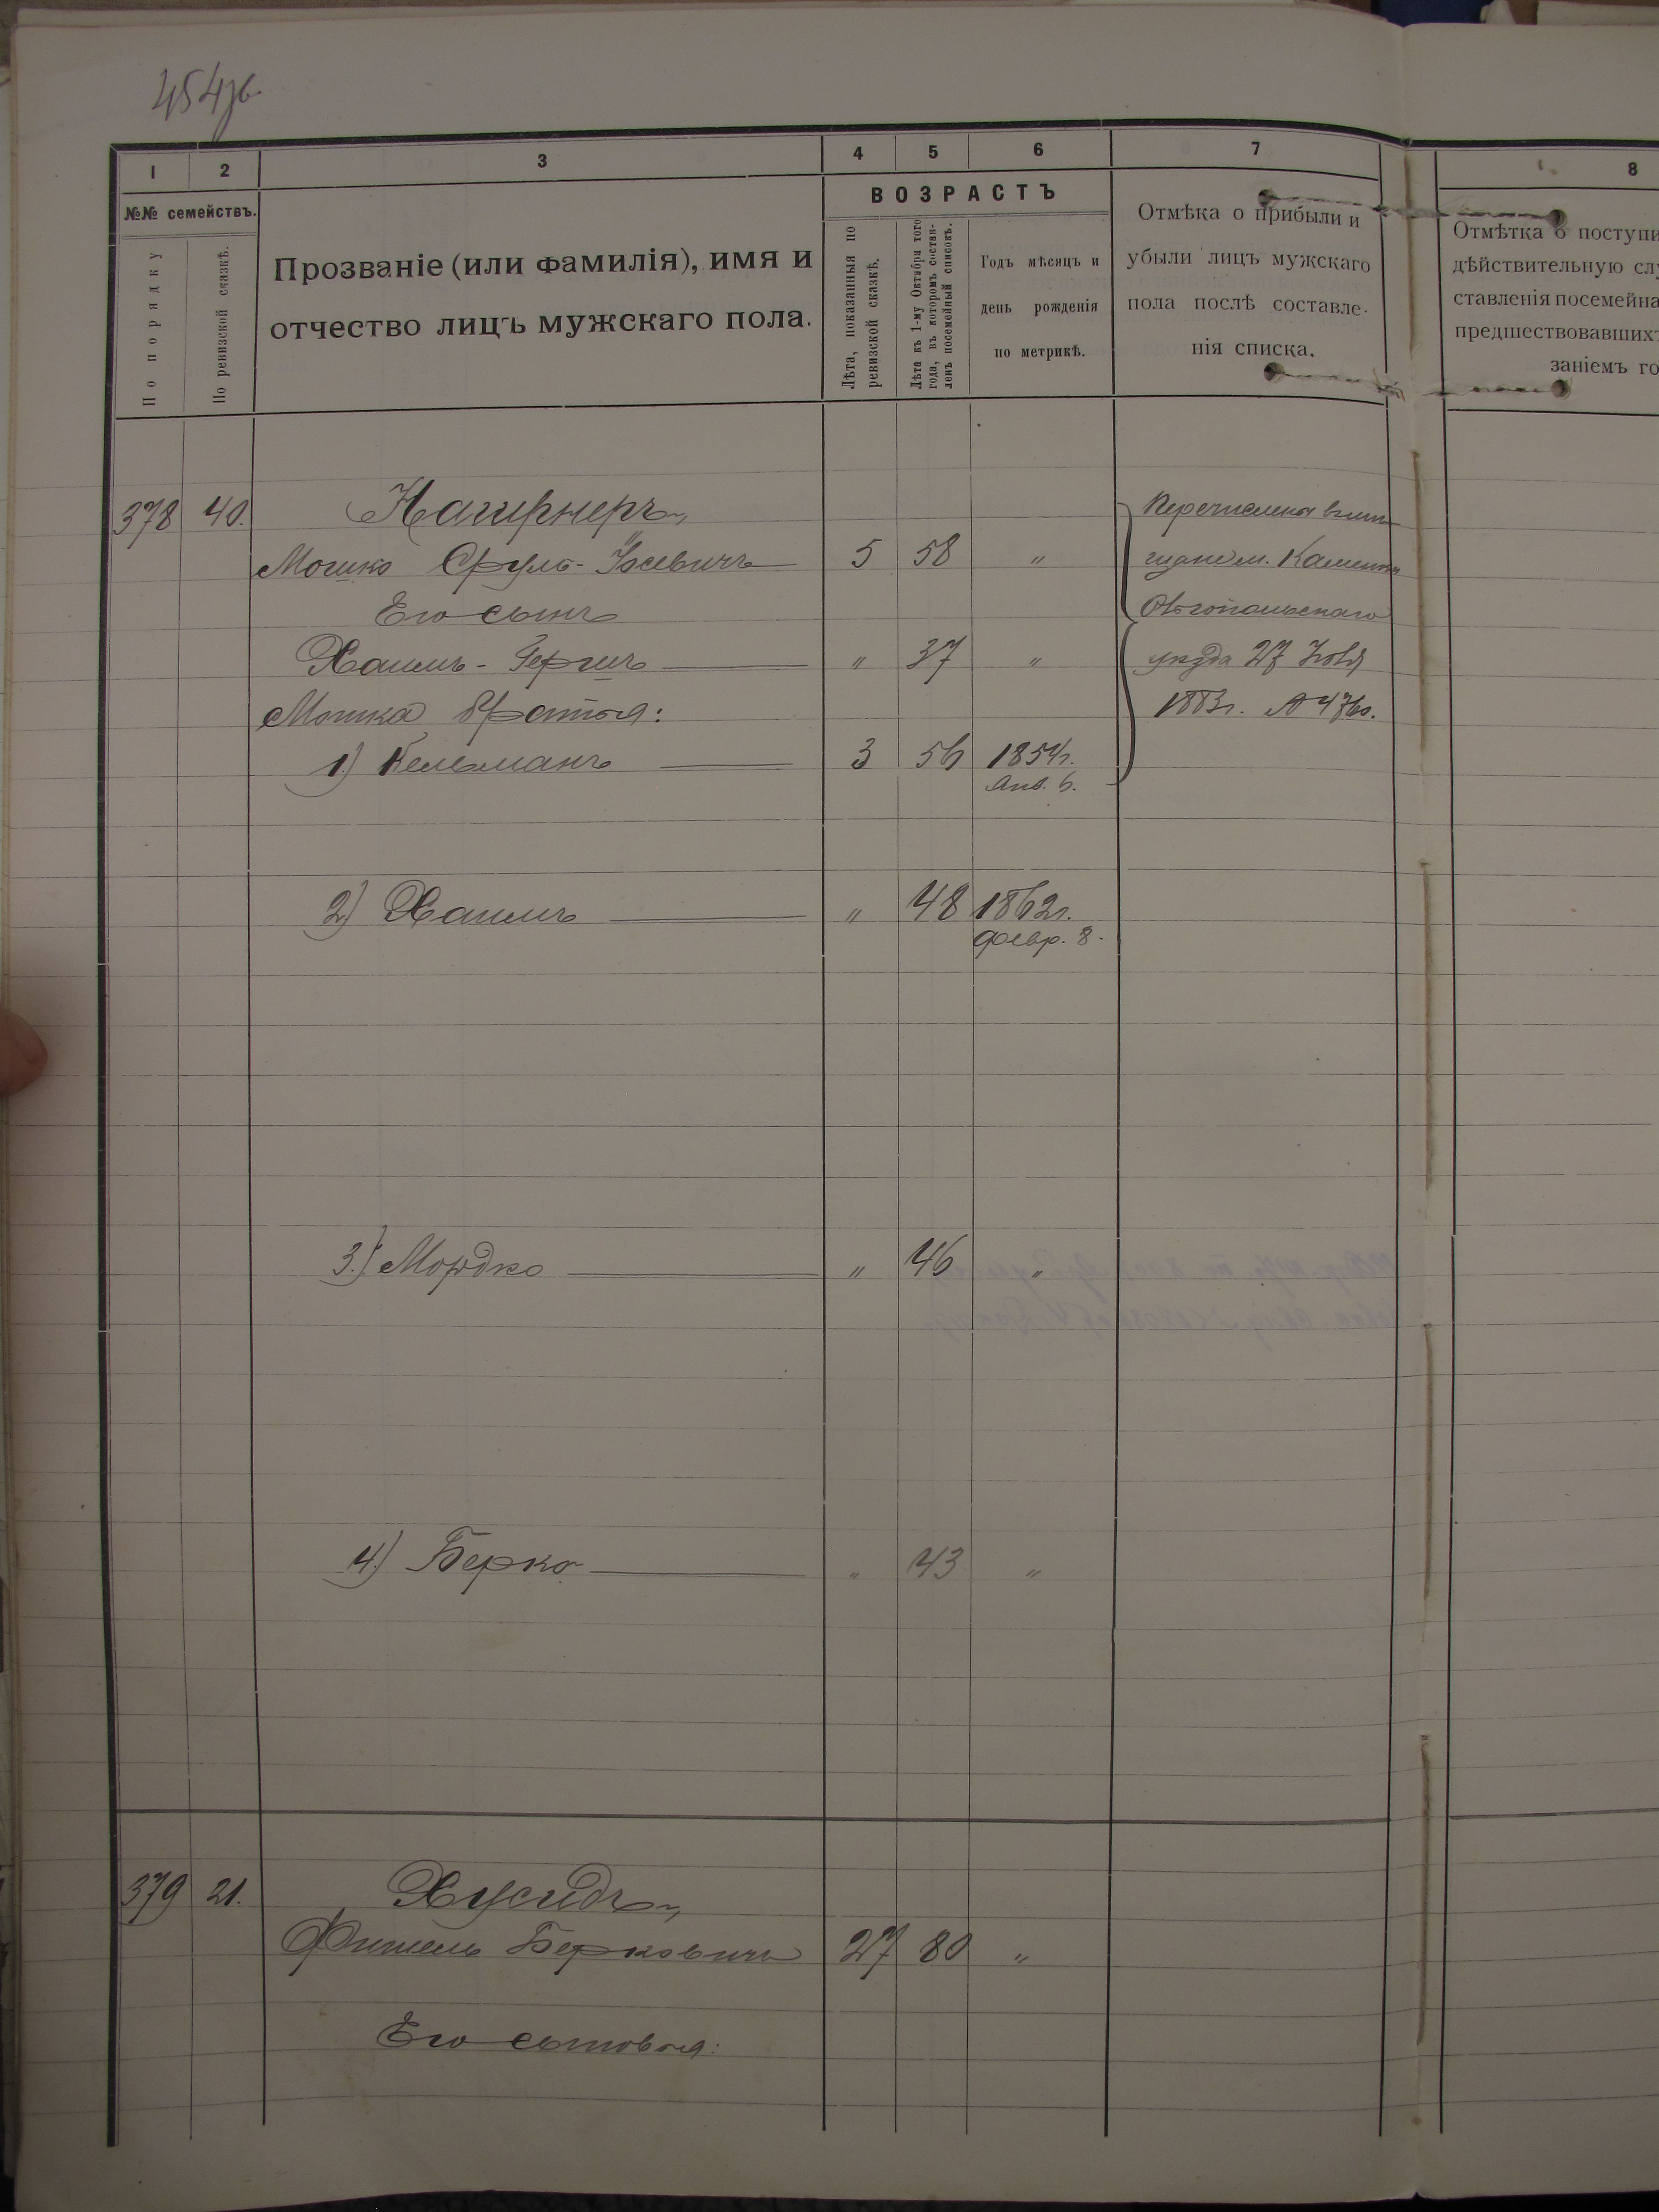 454 об.
1 2 3 4 5 6 7 8
№№ семействъ.
По порядку
По ревизской сказкѣ.
Прозваніе (или фамилія), имя и
отчество лицъ мужскаго пола.
ВОЗРАСТЪ
Лѣта, показанныя по
ревизской сказкѣ.
Лѣта къ 1-му Октября того
года, въ которомъ состав-
ленъ посемейный списокъ.
Годъ мѣсяцъ и
день рожденія
по метрикѣ.
Отмѣка о прибыли и
убыли лицъ мужскаго
пола послѣ составле-
нія списка.
Отмѣтка о поступи
дѣйствительную слу
ставленія посемейна
предшествовавших
заніемъ го
378 40. Нагирнеръ,
Мошко Сруль-Іосевичъ 5 58 "
Его сынъ
Хаимъ-Гершъ " 37 "
Мошка братья:
1) Кельманъ 3 56 1854г.
Янв. 6.
Перечислены
м. Каменки
Ольгопольскаго
уѣзда 27 Іюля
1883г. № 4760.
2) Хаимъ " 48 1862г.
Февр. 8.
3) Мордко " 46 "
4) Берко " 43 "
379 21. Хусидъ,
Фишель Берковичъ 27 80 "
Его сыновья: